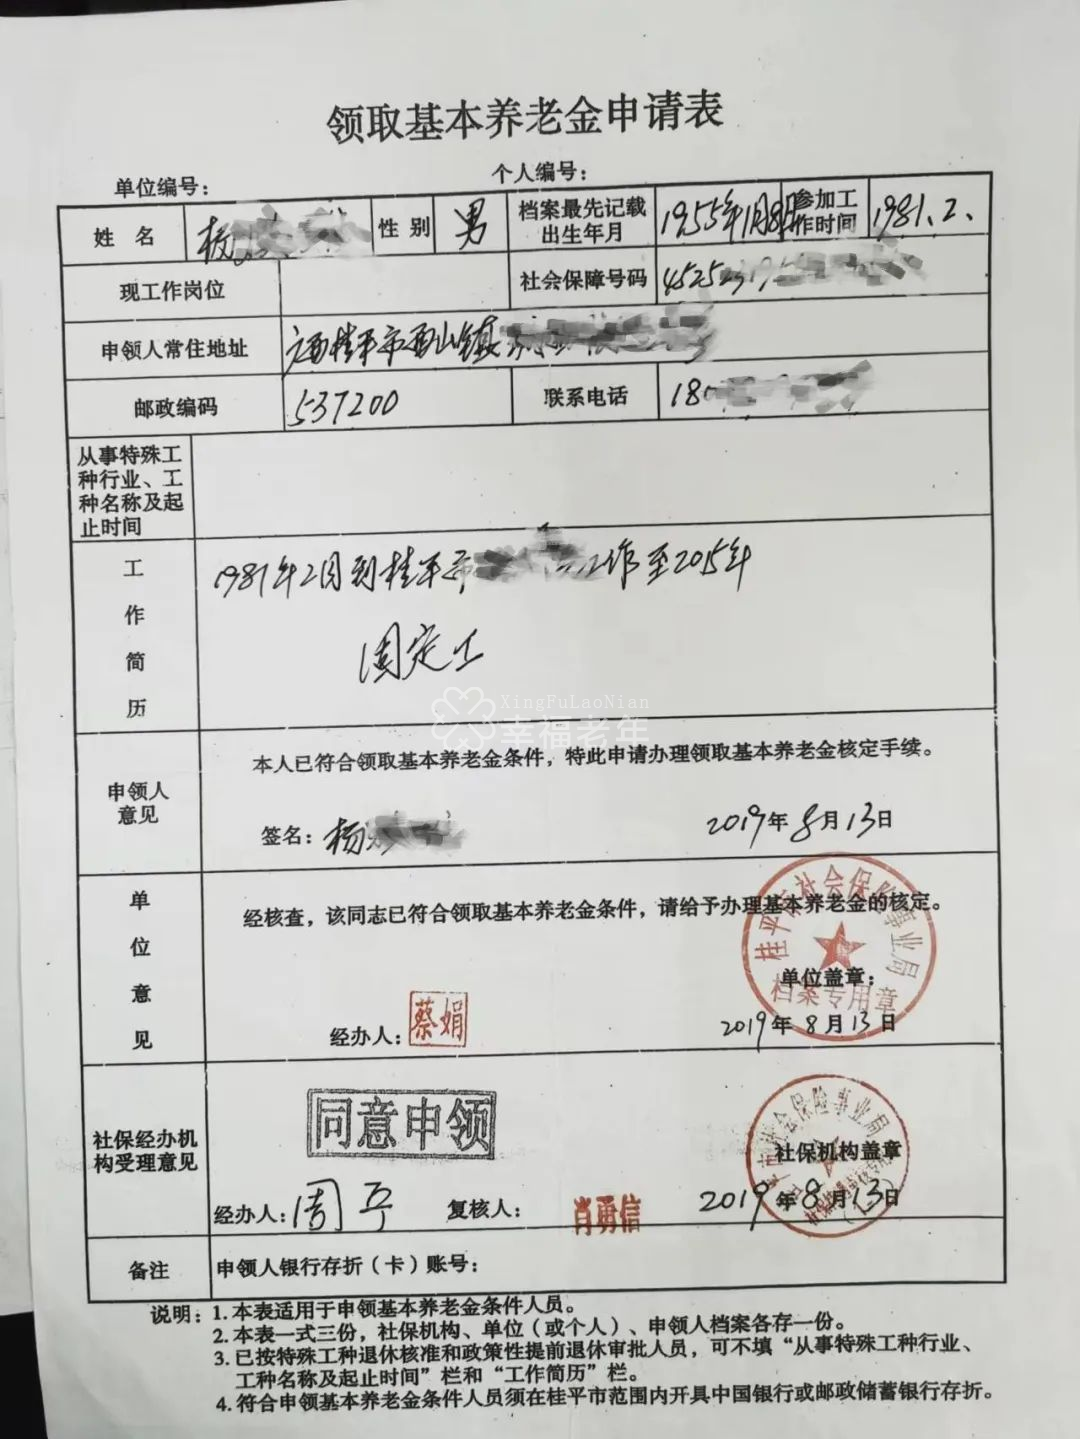 领取基本养老金申请表
单位编号：
个人编号：
姓 名
杨
性 别
男
档案最先记载
出生年月
1955年1月8日
参加工
作时间
1981.2.
现工作岗位
社会保障号码
45252319
申领人常住地址
广西桂平市西山镇
邮政编码
537200
联系电话
180
从事特殊工
种行业、工
种名称及起
止时间
工
作
简
历
1981年2月到桂平市 工作至2015年
固定工
XingFuLaoNian
幸福老年
申领人
意见
本人已符合领取基本养老金条件，特此申请办理领取基本养老金核定手续。
签名：杨
2019年8月13日
单
位
意
见
经核查，该同志已符合领取基本养老金条件，请给予办理基本养老金的核定。
桂平市社会保险事业局
档案专用章
单位盖章：
经办人：
蔡娟
2019年8月13日
社保经办机
构受理意见
同意申领
市社会保险事业局
社保机构盖章
经办人：周
复核人：
肖勇信
2019年8月13日
备注
申领人银行存折（卡）账号：
说明：1.本表适用于申领基本养老金条件人员。
2.本表一式三份，社保机构、单位（或个人）、申领人档案各存一份。
3.已按特殊工种退休核准和政策性提前退休审批人员，可不填“从事特殊工种行业、
工种名称及起止时间”栏和“工作简历”栏。
4.符合申领基本养老金条件人员须在桂平市范围内开具中国银行或邮政储蓄银行存折。